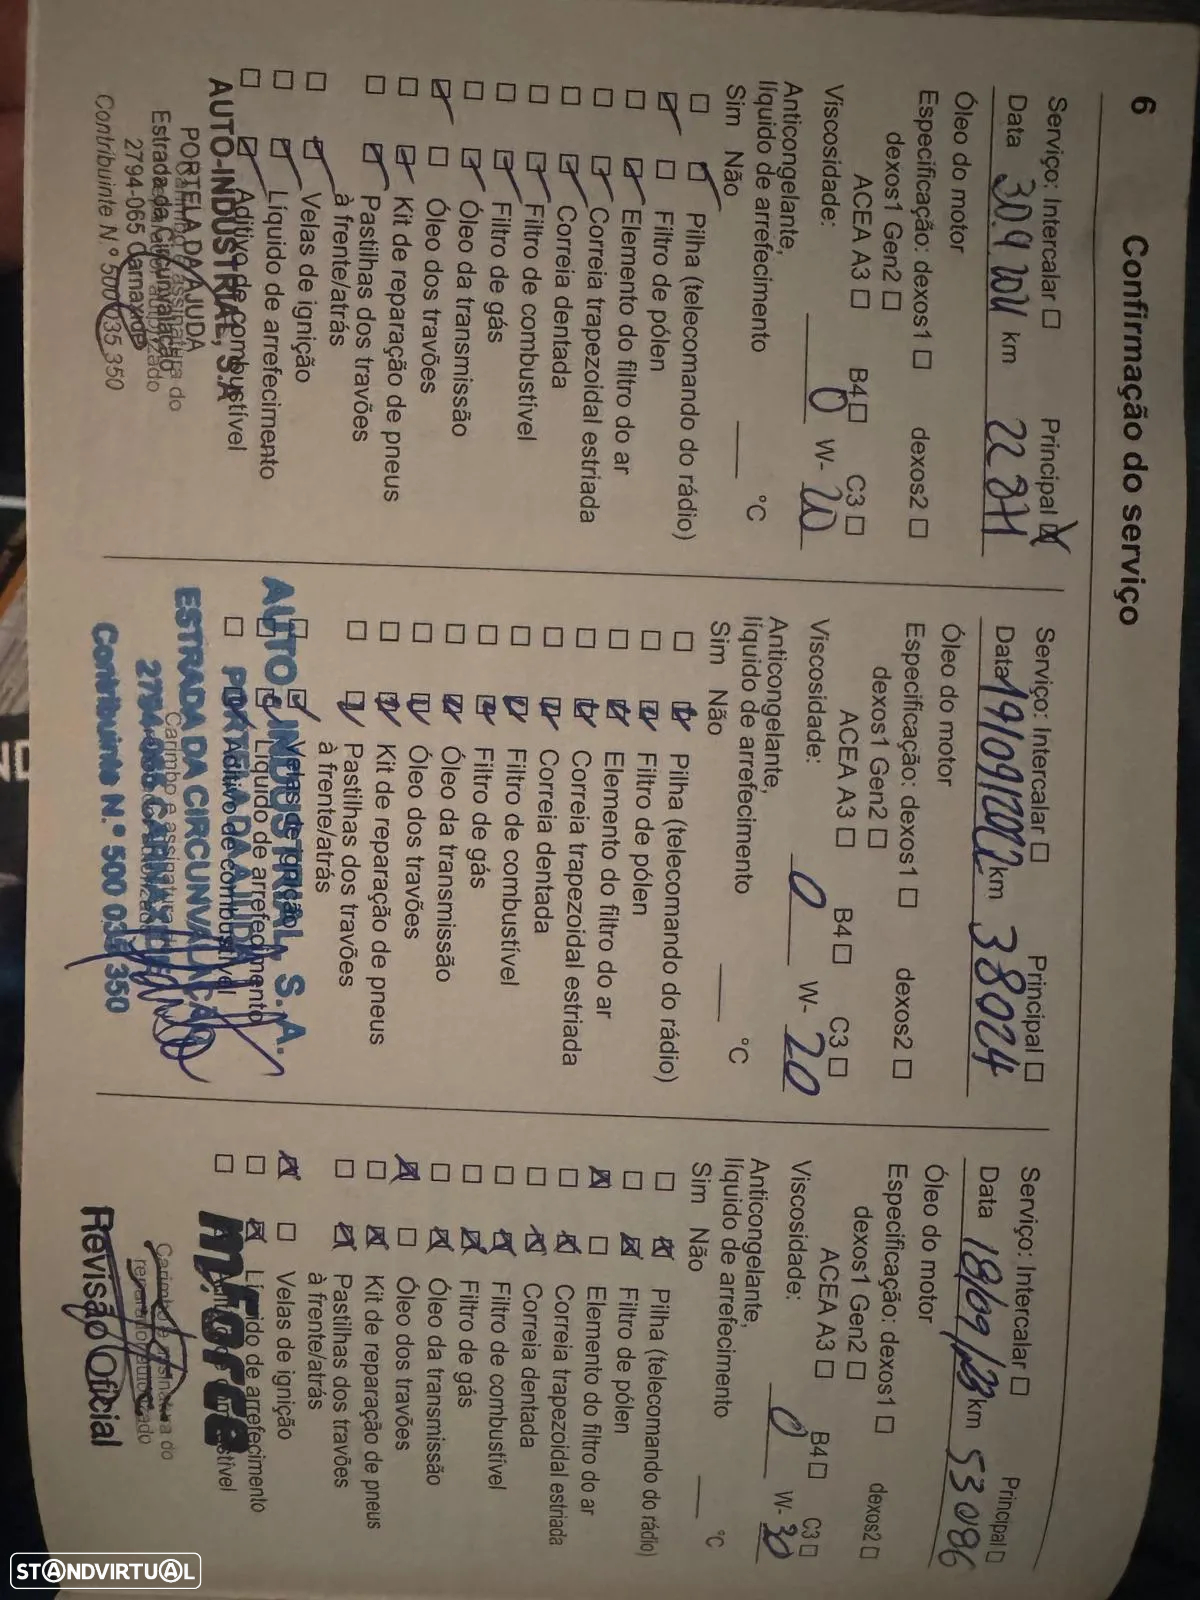 6 Confirmação do serviço
Serviço: Intercalar ☐ Principal ☒
Data 30.9.2021 km 22 271
Óleo do motor
Especificação: dexos1 ☐ dexos2 ☐
dexos1 Gen2 ☐
ACEA A3 ☐ B4 ☐ C3 ☐
Viscosidade: 0 W- 20
Anticongelante,
líquido de arrefecimento ___ °C
Sim Não
☐ ☑ Pilha (telecomando do rádio)
☑ ☐ Filtro de pólen
☐ ☑ Elemento do filtro do ar
☐ ☑ Correia trapezoidal estriada
☐ ☑ Correia dentada
☐ ☑ Filtro de combustível
☐ ☑ Filtro de gás
☐ ☑ Óleo da transmissão
☑ ☐ Óleo dos travões
☐ ☑ Kit de reparação de pneus
☐ ☑ Pastilhas dos travões
à frente/atrás
☐ ☑ Velas de ignição
☐ ☑ Líquido de arrefecimento
☐ ☑ Aditivo de combustível
AUTO-INDUSTRIAL, S.A
PORTELA DA AJUDA
Estrada da Circunvalação
2794-065 Carnaxide
Contribuinte N.º 500 035 350
Serviço: Intercalar ☐ Principal ☐
Data 19/09/2022 km 38024
Óleo do motor
Especificação: dexos1 ☐ dexos2 ☐
dexos1 Gen2 ☐
ACEA A3 ☐ B4 ☐ C3 ☐
Viscosidade: 0 W- 20
Anticongelante,
líquido de arrefecimento ___ °C
Sim Não
☐ ☑ Pilha (telecomando do rádio)
☐ ☑ Filtro de pólen
☐ ☑ Elemento do filtro do ar
☐ ☑ Correia trapezoidal estriada
☐ ☑ Correia dentada
☐ ☑ Filtro de combustível
☐ ☑ Filtro de gás
☐ ☑ Óleo da transmissão
☐ ☑ Óleo dos travões
☐ ☑ Kit de reparação de pneus
☐ ☑ Pastilhas dos travões
à frente/atrás
☐ ☑ Velas de ignição
☐ ☑ Líquido de arrefecimento
☐ ☑ Aditivo de combustível
AUTO INDUSTRIAL, S.A.
PORTELA DA AJUDA
ESTRADA DA CIRCUNVALAÇÃO
2794-065 CARNAXIDE
Contribuinte N.º 500 035 350
Serviço: Intercalar ☐ Principal ☐
Data 18/09/23 km 53086
Óleo do motor
Especificação: dexos1 ☐ dexos2 ☐
dexos1 Gen2 ☐
ACEA A3 ☐ B4 ☐ C3 ☐
Viscosidade: 0 W- 30
Anticongelante,
líquido de arrefecimento ___ °C
Sim Não
☐ ☒ Pilha (telecomando do rádio)
☐ ☒ Filtro de pólen
☒ ☐ Elemento do filtro do ar
☐ ☒ Correia trapezoidal estriada
☐ ☒ Correia dentada
☐ ☒ Filtro de combustível
☐ ☒ Filtro de gás
☐ ☒ Óleo da transmissão
☒ ☐ Óleo dos travões
☐ ☒ Kit de reparação de pneus
☐ ☒ Pastilhas dos travões
à frente/atrás
☒ ☐ Velas de ignição
☐ ☒ Líquido de arrefecimento
mForce
Carimbo e assinatura do
reparador autorizado
Revisão Oficial
STANDVIRTUAL